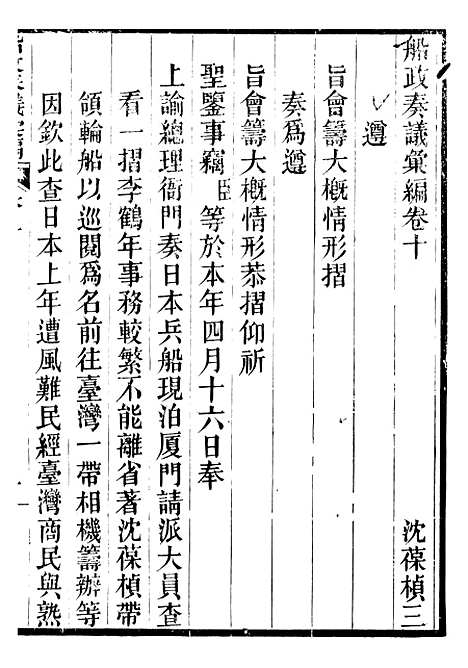 船政奏議彙編卷十
沈葆楨三
遵
旨會籌大概情形摺
奏爲遵
旨會籌大概情形恭摺仰祈
聖鑒事竊臣等於本年四月十六日奉
上諭總理衙門奏日本兵船現泊厦門請派大員查
看一摺李鶴年事務較繁不能離省著沈葆楨帶
領輪船以巡閱爲名前往臺灣一帶相機籌辦等
因欽此查日本上年遭風難民經臺灣商民與熟